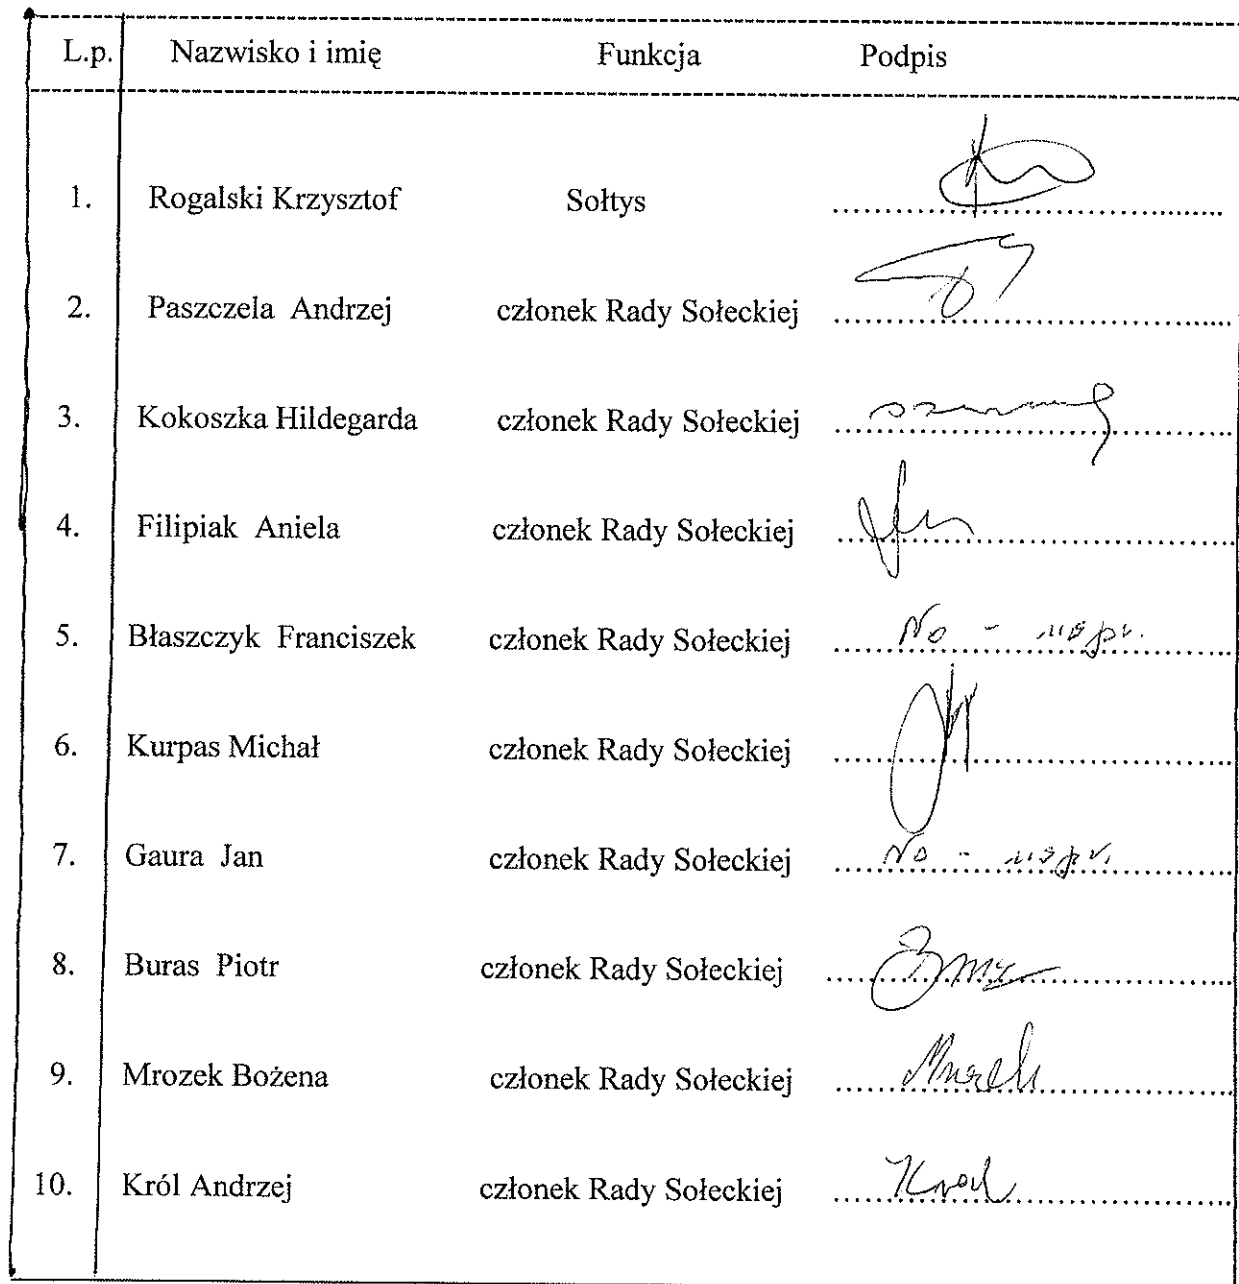 L.p. Nazwisko i imię Funkcja Podpis
1. Rogalski Krzysztof Sołtys ........................................
2. Paszczela Andrzej członek Rady Sołeckiej ........................................
3. Kokoszka Hildegarda członek Rady Sołeckiej ........................................
4. Filipiak Aniela członek Rady Sołeckiej ........................................
5. Błaszczyk Franciszek członek Rady Sołeckiej ........................................
6. Kurpas Michał członek Rady Sołeckiej ........................................
7. Gaura Jan członek Rady Sołeckiej ........................................
8. Buras Piotr członek Rady Sołeckiej ........................................
9. Mrozek Bożena członek Rady Sołeckiej ........................................
10. Król Andrzej członek Rady Sołeckiej ........................................